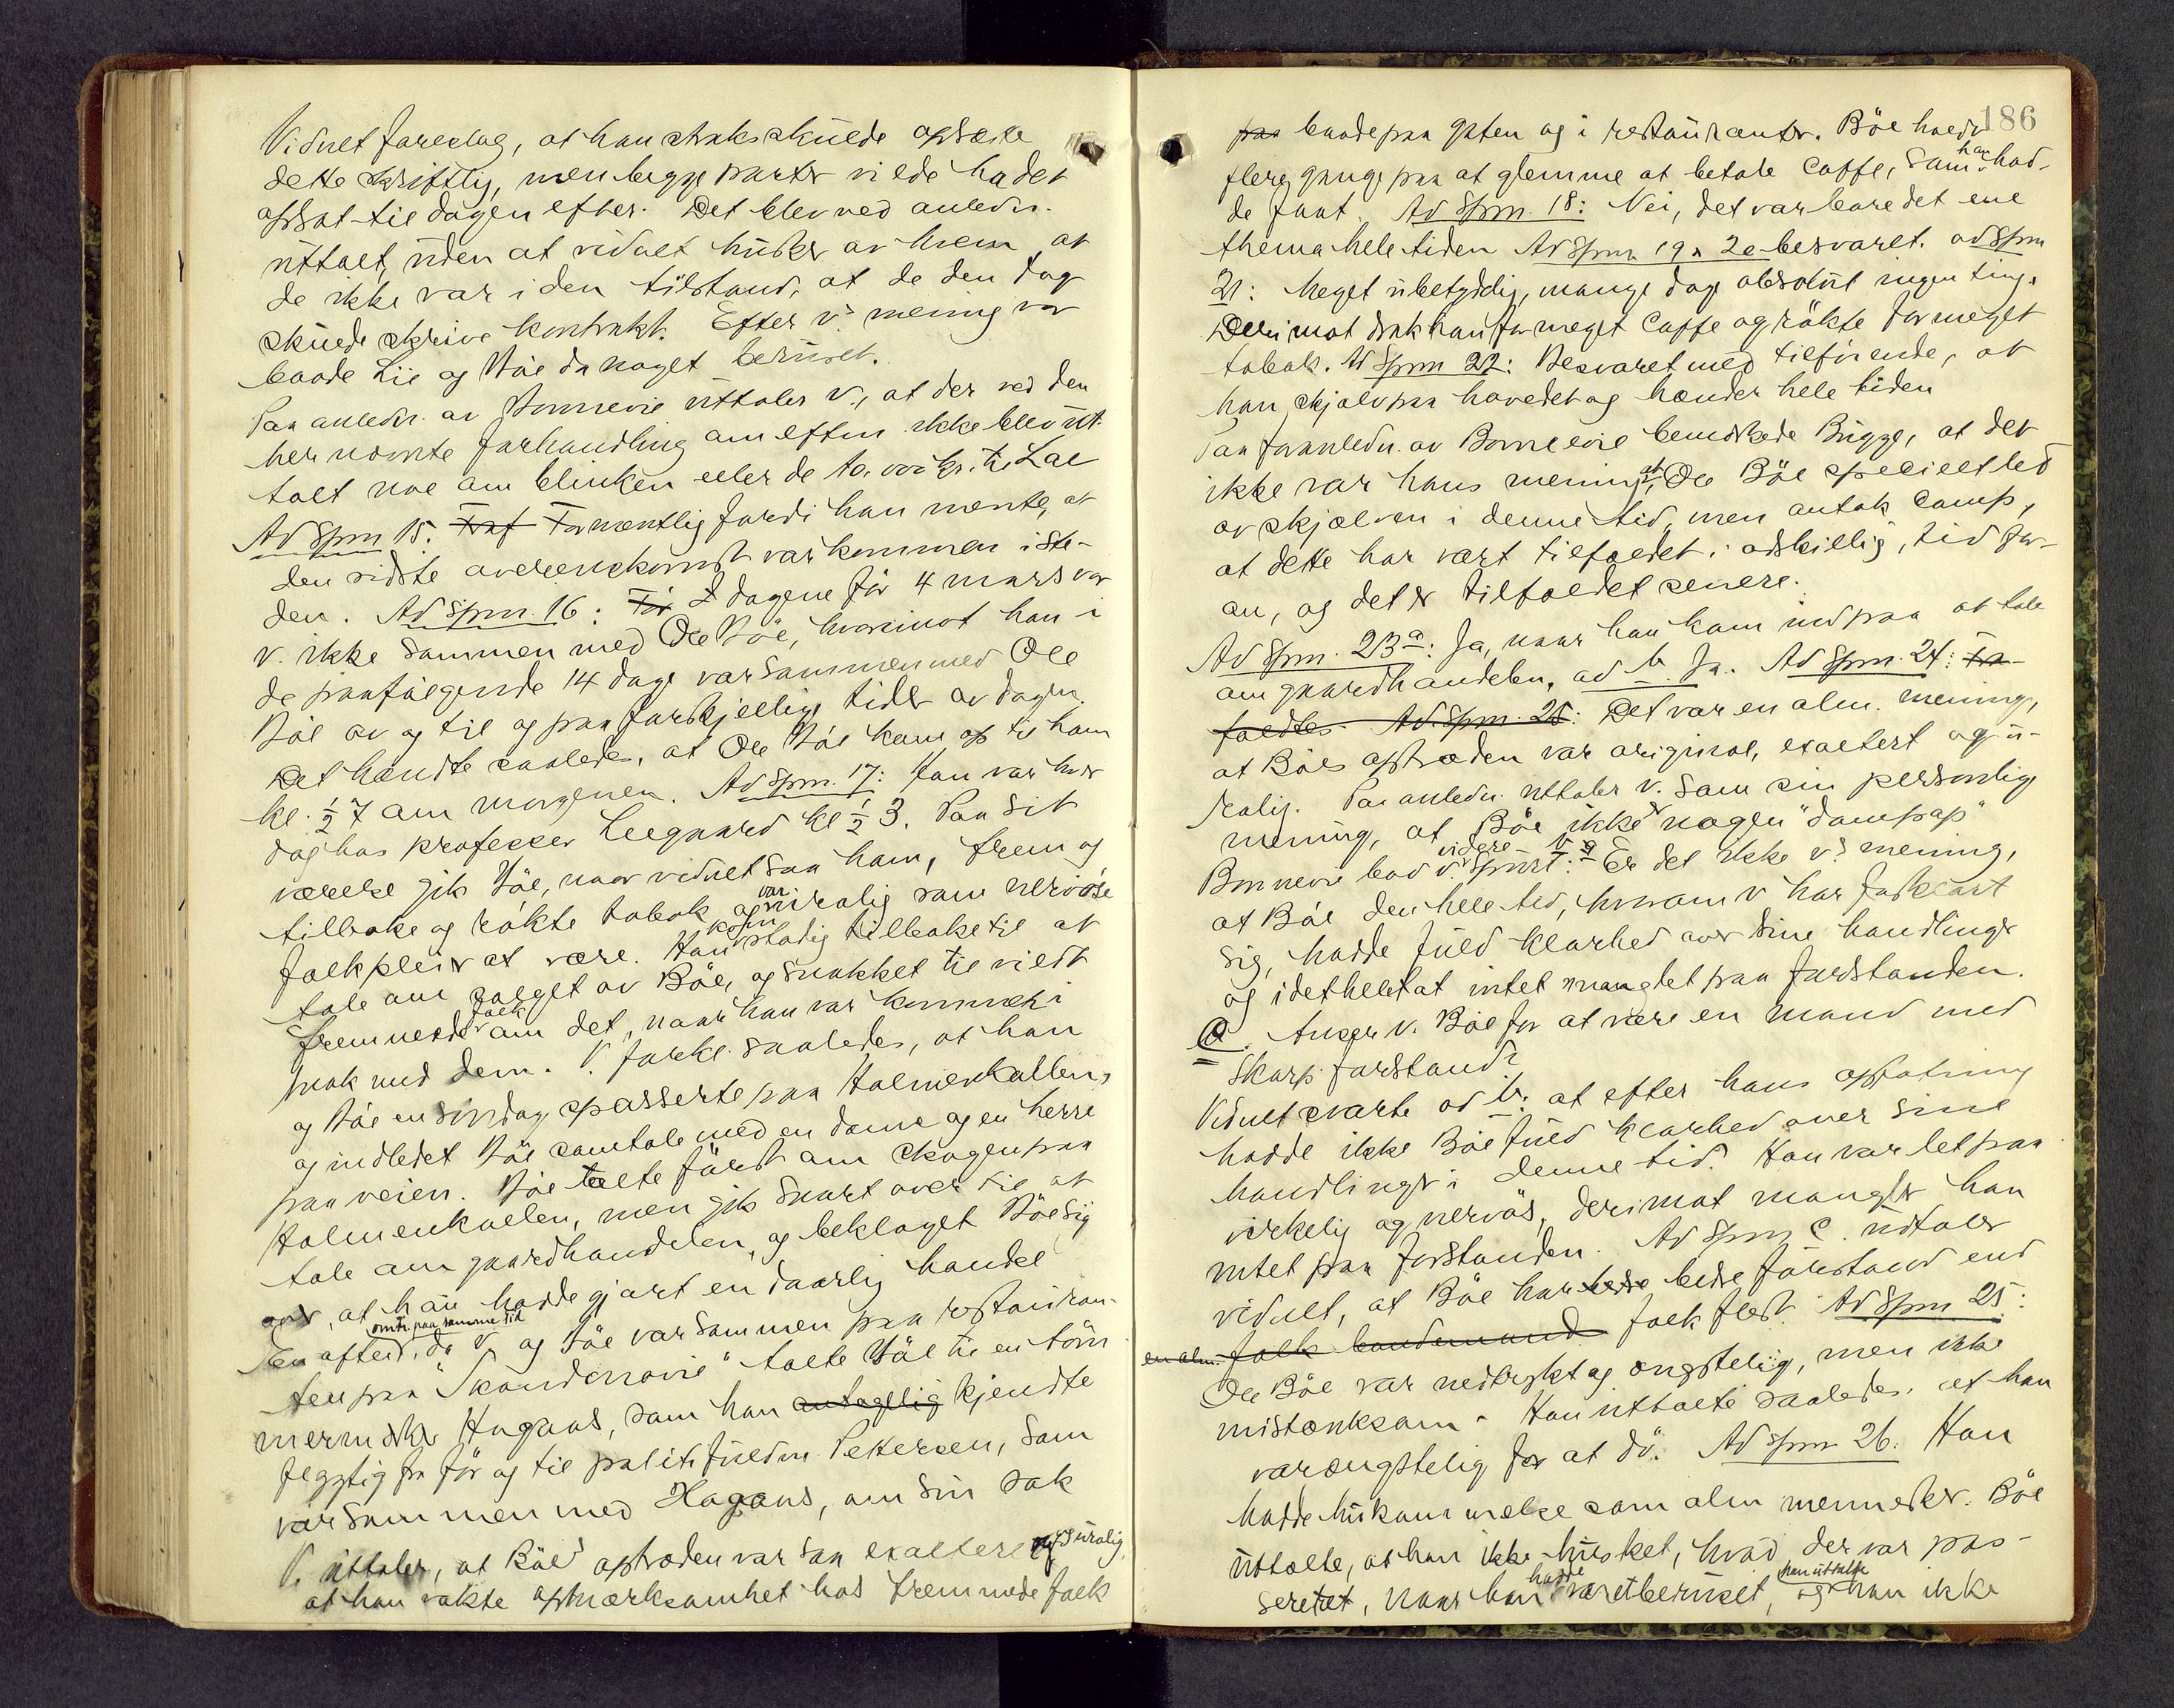 Vidnet foreslog, at han straks skulde opsætte
dette skriftlig, men begge parter vilde ha det
opsat til dagen efter. Det blev ved anledn.
uttalt, uden at vidnet husker av hvem, at
de ikke var i den tilstand, at de den dag
skulde skrive kontrakt. Efter v's mening var
baade Lie og Böe da noget beruset.
Paa anledn. av Bonnevie uttaler v., at der ved den
her nævnte forhandling om efterm. ikke blev ut-
talt noe om blinken eller de to. kr. til Lae
Ad spm 15. Formentlig fordi han mente, at
den sidste overenskomst var kommen iste-
den. Ad spm. 16: Før I dagene før 4 mars var
v. ikke sammen med Ole Böe, hvorimot han i
de paafølgende 14 dage var sammen med Ole
Böe av og til og paa forskjellige tider av dagen.
Det hændte saaledes, at Ole Böe kom op til ham
kl. ½ 7 om morgenen. Ad spm. 17: Han var hver
dag hos professor Leegaard kl ½ 3. Paa sit
værelse gik Böe, naar vidnet saa ham, frem og
tilbake og røkte tobak og var urolig som nervøse
folk pleier at være. Han kom stadig tilbake til at
tale om salget av Böe, og snakket til vildt
fremmede folk om det, naar han var kommet i
snak med dem. V. forkl. saaledes, at han
og Böe en søndag spasserte paa Holmenkollen,
og indledet Böe samtale med en dame og en herre
paa veien. Böe talte först om skogen paa
Holmenkollen, men gik snart over til at
tale om gaardhandelen, og beklaget Böe sig
over, at han hadde gjort en daarlig handel
En aften, omtr. paa samme tid da v. og Böe var sammen paa restauran-
ten paa "Skandinavie" talte Böe til en töm-
mermester Hagaas, som han antagelig kjendte
flygtig fra før og til politifuldm. Pettersen, som
var sammen med Hagaas, om sin sak
V. uttaler, at Böes optræden var saa exaltert og urolig,
at han vakte opmærksamhet hos fremmede folk
186
paa baade paa gaten og i restauranter. Böe hadde
flere gange paa at glemme at betale caffe, som han had-
de faat. Ad spm. 18: Nei, det var bare det ene
thema hele tiden Ad spm 19 & 20 besvaret. ad spm
21: Meget ubetydelig, mange dage absolut ingen ting.
Derimot drak han for meget caffe og røkte for meget
tobak. Ad spm 22: Besvaret med tilføiende, at
han skjalv paa hovedet og hænder hele tiden
Paa foranledn. av Bonnevie bemerkede Brigge, at det
ikke var hans mening, at Ole Böe specielt led
av skjælven i denne tid, men antok Camp,
at dette har vært tilfældet i adskillig, tid for-
an, og det er tilfældet senere.
Ad spm. 23a: Ja, naar han kom ind paa at tale
om gaardhandelen, ad b. Ja. Ad spm. 24:
faldes. Ad spm. 25: Det var en alm. mening,
at Böes optræden var original, exaltert og u-
rolig. Paa anledn. uttaler v. som sin personlige
mening, at Böe ikke er nogen "dompap"
Bonnevie bad v. videre spurt: b Er det ikke v's mening,
at Böe den hele tid, hvorom v har forklart
sig, hadde fuld klarhed over sine handlinger
og i det hele tat intet manglet paa forstanden.
C. Anser v. Böe for at være en mand med
skarp forstand?
Vidnet svarte ad b: at efter hans opfatning
hadde ikke Böe fuld klarhed over sine
handlinger i denne tid. Han var let paa
virkelig og nervøs, derimot mangler han
intet paa forstanden. Ad spm c. udtaler
vidnet, at Böe har bedre bedre forstand end
en alm. folk bondemand folk flest. Ad spm 25:
Ole Böe var nedtrykt og ængstelig, men ikke
mistænksom. Han uttalte saaledes, at han
var ængstelig for at dö. Ad spm 26. Han
hadde hukommelse som alm mennesker. Böe
uttalte, at han ikke husket, hvad der var pas-
seret, naar han hadde været beruset, og han uttalte han ikke